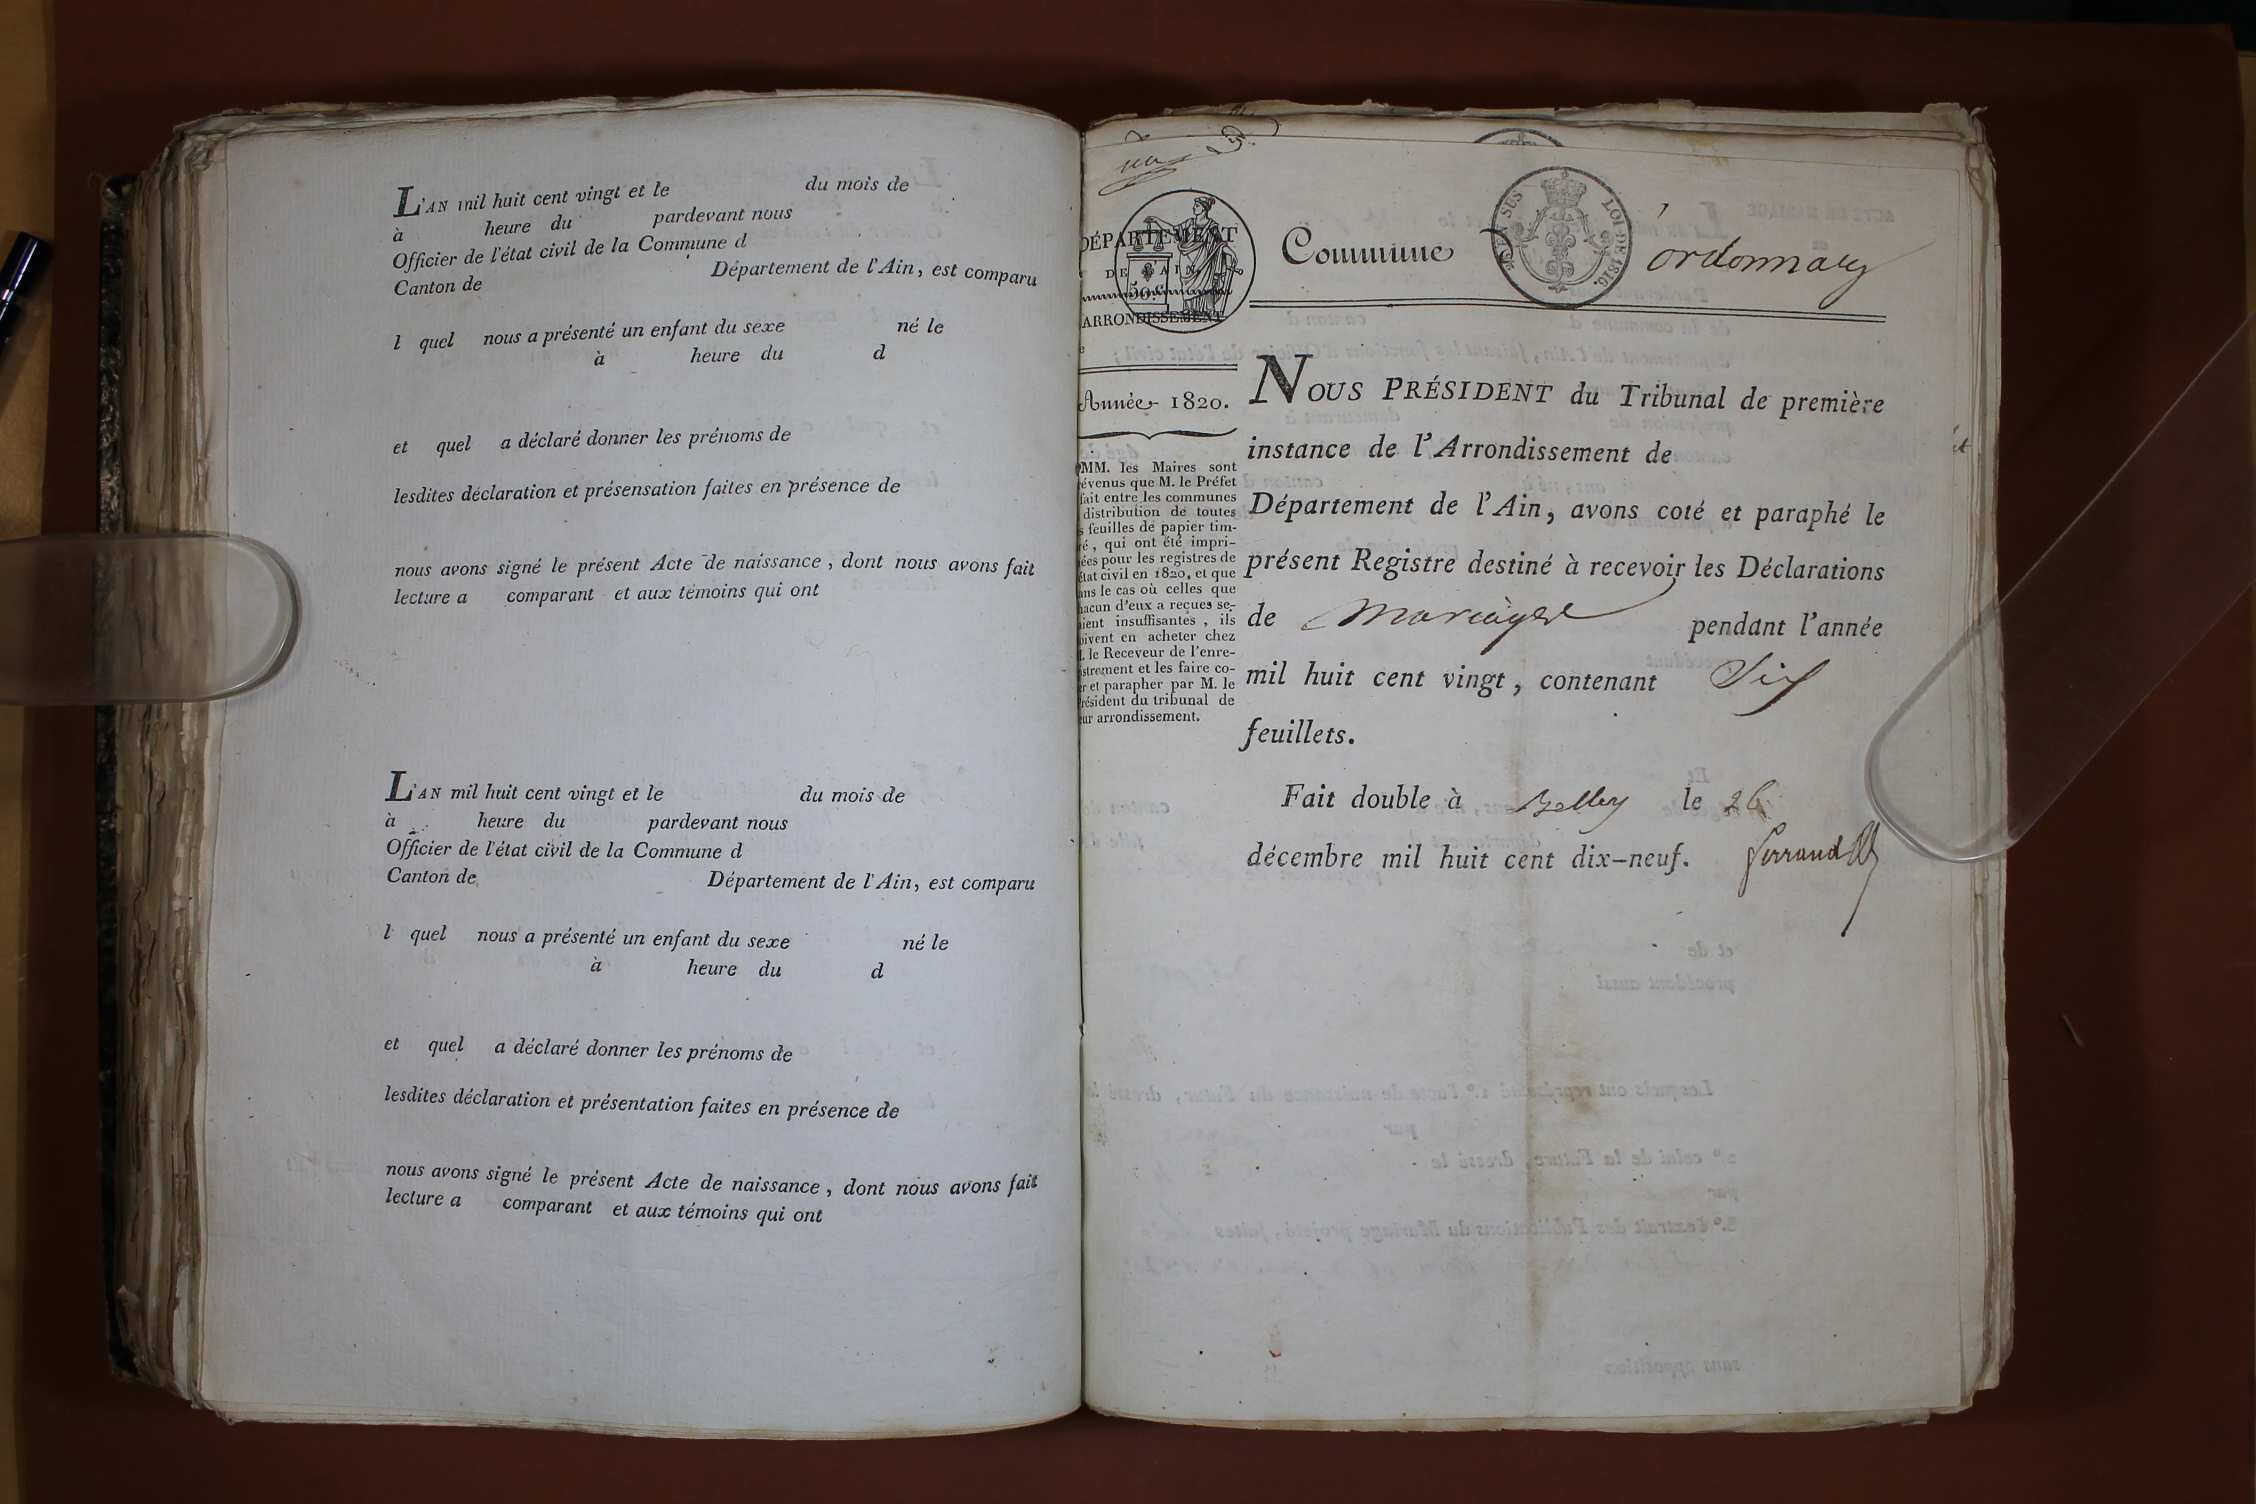 L'AN mil huit cent vingt et le du mois de
à heure du pardevant nous
Officier de l'état civil de la Commune d
Canton de Département de l'Ain, est comparu
l quel nous a présenté un enfant du sexe né le
à heure du d
et quel a déclaré donner les prénoms de
lesdites déclaration et présensation faites en présence de
nous avons signé le présent Acte de naissance, dont nous avons fait
lecture a comparant et aux témoins qui ont
L'AN mil huit cent vingt et le du mois de
à heure du pardevant nous
Officier de l'état civil de la Commune d
Canton de Département de l'Ain, est comparu
l quel nous a présenté un enfant du sexe né le
à heure du d
et quel a déclaré donner les prénoms de
lesdites déclaration et présentation faites en présence de
nous avons signé le présent Acte de naissance, dont nous avons fait
lecture a comparant et aux témoins qui ont
un
DÉPARTEMENT
DE L'AIN
50 c
ARRONDISSEMENT
e
Année 1820.
MM. les Maires sont
évenus que M. le Préfet
fait entre les communes
distribution de toutes
s feuilles de papier tim-
ré, qui ont été impri-
ées pour les registres de
état civil en 1820, et que
ans le cas où celles que
hacun d'eux a reçues se-
aient insuffisantes, ils
oivent en acheter chez
M. le Receveur de l'enre-
istrement et les faire co-
er et parapher par M. le
résident du tribunal de
eur arrondissement.
Commune D'ordonnaz
EN SUS LOI DE 1816.
NOUS PRÉSIDENT du Tribunal de première
instance de l'Arrondissement de
Département de l'Ain, avons coté et paraphé le
présent Registre destiné à recevoir les Déclarations
de Mariages pendant l'année
mil huit cent vingt, contenant Six
feuillets.
Fait double à Belley le 26
décembre mil huit cent dix-neuf. ferrand